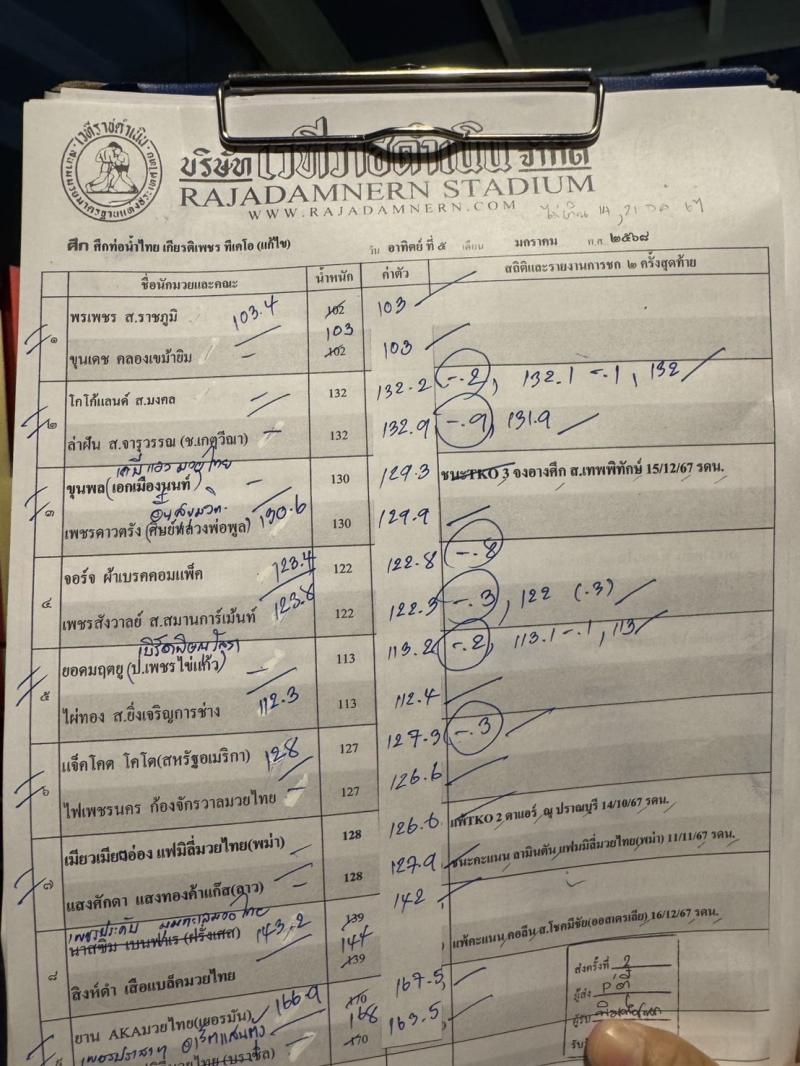 เวทีราชดำเนิน
บริษัท เวทีราชดำเนิน จำกัด
RAJADAMNERN STADIUM
WWW.RAJADAMNERN.COM
ศึก ศึกท่อน้ำไทย เกียรติเพชร ทีเคโอ (แก้ไข) วัน อาทิตย์ ที่ ๕ เดือน มกราคม พ.ศ ๒๕๖๘
ชื่อนักมวยและคณะ น้ำหนัก ค่าตัว สถิติและรายงานการชก ๒ ครั้งสุดท้าย
๑ พรเพชร ส.ราชภูมิ 103.4 102 103 103
ขุนเดช คลองเขม้ายิม - 102 103
๒ โกโก้แลนด์ ส.มงคล 132 132.2 -.2, 132.1 -.1, 132
ล่าฝัน ส.จารุวรรณ (ช.เกตุวีณา) - 132 132.9 -.9, 131.9
๓ ขุนพล (เอกเมืองนนท์) - 130 129.3 ชนะTKO 3 จงอางศึก ส.เทพพิทักษ์ 15/12/67 รดน.
เพชรดาวตรัง (ศิษย์หลวงพ่อพูล) 130.6 130 129.9
๔ จอร์จ ผ้าเบรคคอมแพ็ค 123.4 122 122.8 -.8
เพชรสังวาลย์ ส.สมานการ์เม้นท์ 123.8 122 122.3 -.3, 122 (.3)
๕ ยอดมฤตยู (ป.เพชรไข่แก้ว) - 113 113.2 -.2, 113.1 -.1, 113
ไผ่ทอง ส.ยิ่งเจริญการช่าง 112.3 113 112.4
๖ แจ็คโคต โคโต(สหรัฐอเมริกา) 128 127 127.3 -.3
ไฟเพชรนคร ก้องจักรวาลมวยไทย - 127 126.6
๗ เมียวเมียตอ่อง แฟมิลี่มวยไทย(พม่า) 128 126.6 แพ้TKO 2 ดาแอร์ ณ ปราณบุรี 14/10/67 รดน.
แสงศักดา แสงทองค้าแก๊ส(ลาว) - 128 127.9 ชนะคะแนน ลามินตัน แฟมมิลี่มวยไทย(พม่า) 11/11/67 รดน.
๘ นาสซิม เบนฟาเร (ฝรั่งเศส) 143.2 139 144 142
สิงห์ดำ เสือแบล็คมวยไทย 139 แพ้คะแนน คอลิน ส.โชคมีชัย(ออสเตรเลีย) 16/12/67 รดน.
ยาน AKAมวยไทย(เยอรมัน) 166.9 170 168 167.5
170 163.5
ส่งครั้งที่ 2
ผู้ส่ง
ผู้รับ